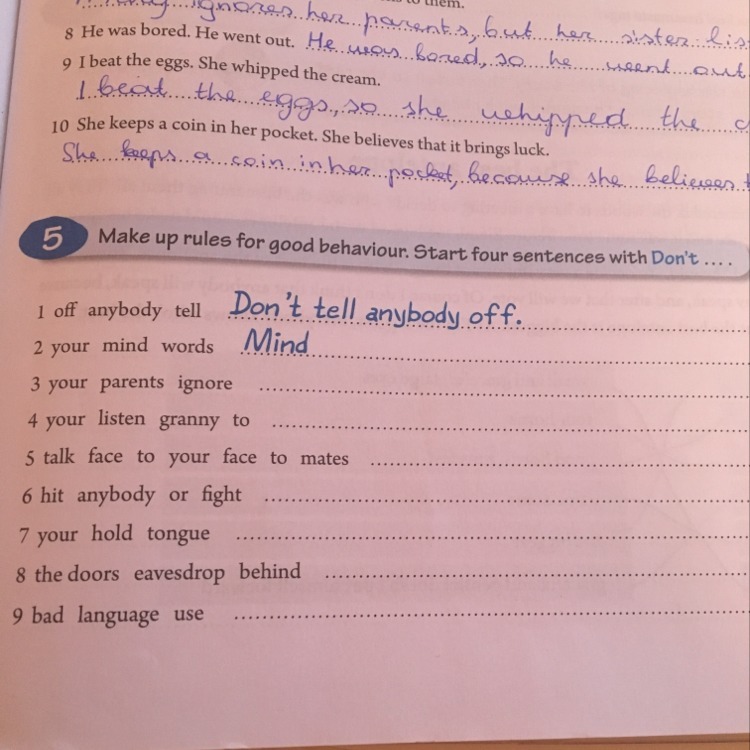 ignores her parents, but her sister lis
to them.
8 He was bored. He went out. He was bored, so he went out
9 I beat the eggs. She whipped the cream.
I beat the eggs, so she whipped the c
10 She keeps a coin in her pocket. She believes that it brings luck.
She keeps a coin in her pocket, because she believes t
5 Make up rules for good behaviour. Start four sentences with Don't ....
1 off anybody tell Don't tell anybody off.
2 your mind words Mind
3 your parents ignore
4 your listen granny to
5 talk face to your face to mates
6 hit anybody or fight
7 your hold tongue
8 the doors eavesdrop behind
9 bad language use